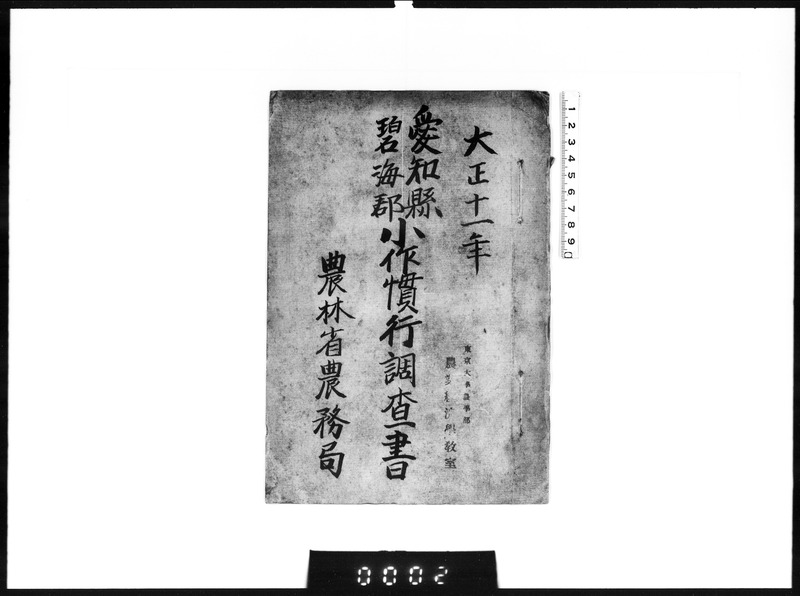 大正十一年
愛知縣
碧海郡
小作慣行調査書
農林省農務局
東京大學農學部
農業経済學教室
1 2 3 4 5 6 7 8 9
0002